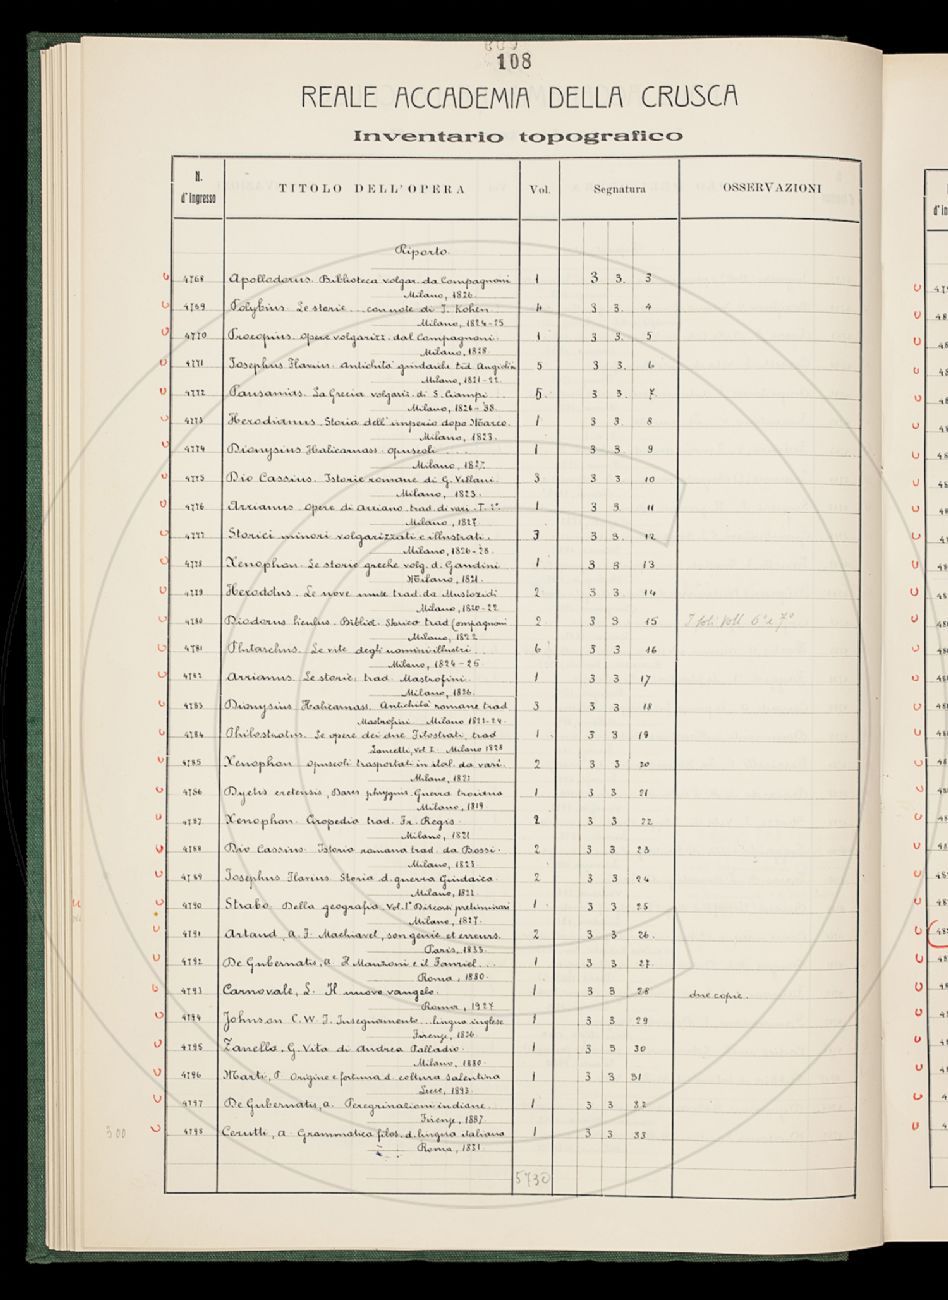 108
REALE ACCADEMIA DELLA CRUSCA
Inventario topografico
N. d'Ingresso TITOLO DELL'OPERA Vol. Segnatura OSSERVAZIONI
Riporto
4768 Apollodorus. Biblioteca volgar. da Compagnoni 1 3 3. 3
Milano, 1826.
4769 Polybius. Le storie... con note di I. Kohen 4 3 3. 4
Milano, 1824-25
4770 Procopius. Opere volgarizz. dal Compagnoni. 1 3 3. 5
Milano, 1828.
4771 Josephus Flavius. Antichità giudaiche trd. Angiolini 5 3 3. 6
Milano, 1821-22.
4772 Pausanias. La Grecia volgariz. di S. Ciampi... 5. 3 3. 7.
Milano, 1826-38.
4773 Herodianus. Storia dell'imperio dopo Marco. 1 3 3. 8
Milano, 1823.
4774 Dionysius Halicarnass. opuscoli.... 1 3 3 9
Milano, 1827.
4775 Dio Cassius. Istorie romane di G. Villani. 3 3 3 10
Milano, 1823.
4776 Arrianus. Opere di Arriano trad. di vari. T. 1º. 1 3 3. 11
Milano, 1827
4777 Storici minori volgarizzati e illustrati. 3 3 3. 12
Milano, 1826-28.
4778 Xenophon. Le storie greche volg. d. Gandini 1 3 3 13
Milano, 1821.
4779 Herodotus. Le nove muse trad. da Mustoxidi 2 3 3 14
Milano, 1820-22
4780 Diodorus Siculus. Bibliot. Storica trad Compagnoni 2 3 3 15 I soli voll 6º e 7º
Milano, 1822
4781 Plutarchus. Le vite degli uomini illustri... 6 3 3 16
Milano, 1824-25
4782 Arrianus. Le storie, trad. Mastrofini. 1 3 3 17
Milano, 1826.
4783 Dionysius Halicarnass. Antichità romane trad 3 3 3 18
Mastrofini Milano 1823-24.
4784 Philostratus. Le opere dei due Filostrati, trad 1. 3 3 19
Lancetti, vol I. Milano 1828
4785 Xenophon opuscoli trasportati in ital. da vari. 2 3 3 20
Milano, 1821
4786 Dyctis cretensis, Dares phrygius. Guerra troiana 1 3 3 21
Milano, 1819
4787 Xenophon. Ciropedia trad. Fr. Regis. 2 3 3 22
Milano, 1821
4788 Dio Cassius. Istoria romana trad. da Bossi. 2 3 3 23
Milano, 1823.
4789 Josephus Flavius. Storia d. guerra Giudaica. 2 3 3 24
Milano, 1822.
4790 Strabo. Della geografia. Vol. 1º Discorsi preliminari 1. 3 3 25
Milano, 1827.
4791 Artaud, A. F. Machiavel, son génie et erreurs. 2 3 3 26.
Paris, 1833.
4792 De Gubernatis, A. Il Manzoni e il Fauriel... 1 3 3 27.
Roma, 1880.
4793 Carnovale, L. Il nuovo vangelo. 1 3 3 28 due copie.
Roma, 1927
4794 Johnson C.W.I. Insegnamento...lingua inglese 1 3 3 29
Firenze, 1836.
4795 Zanella, G. Vita di Andrea Palladio. 1 3 3 30
Milano, 1880.
4796 Marti, P. Origine e fortuna d. coltura salentina 1 3 3 31
Lecce, 1893.
4797 De Gubernatis, A. Peregrinazioni indiane. 1 3 3 32
Firenze, 1887
4798 Cerutti, A. Grammatica filos. d. lingua italiana 1 3 3 33
Roma, 1831.
300
5730